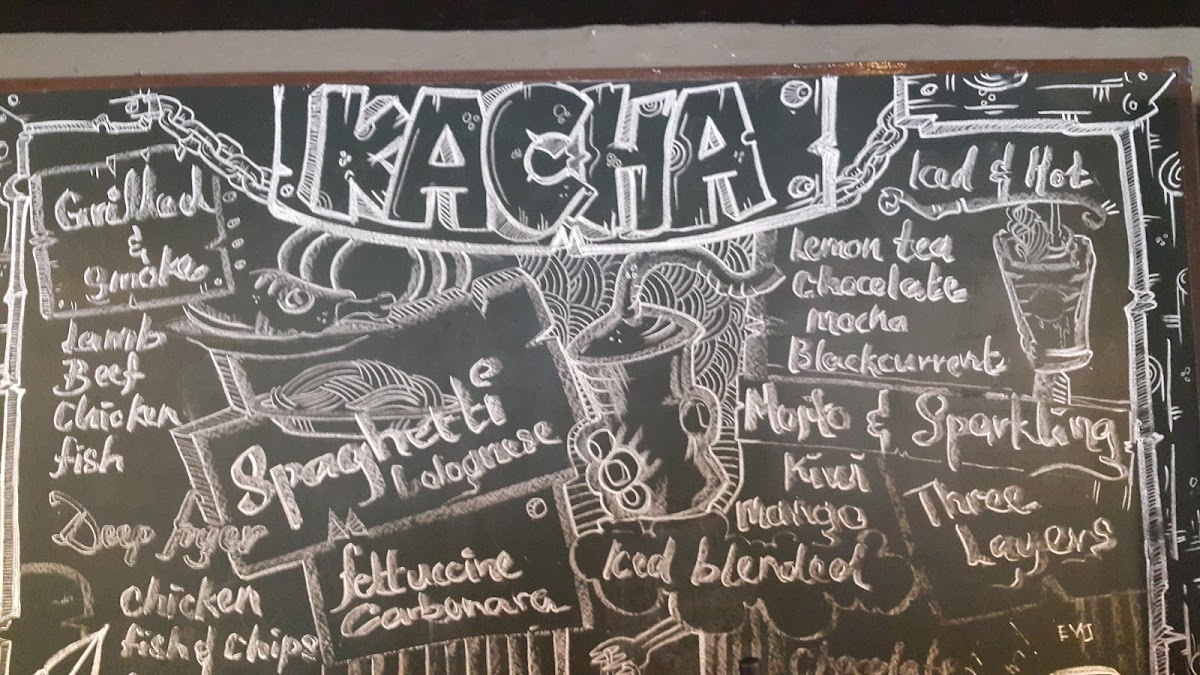 KACHA
Grilled
&
Smoke
Lamb
Beef
Chicken
fish
Deep fryer
Chicken
fish & chips
Spaghetti
bolognese
fettuccine
Carbonara
Iced & Hot
Lemon tea
Chocolate
Mocha
Blackcurrent
Mojto & Sparkling
Kiwi
Mango
Three
Layers
Iced blended
Chocolate
EVJ